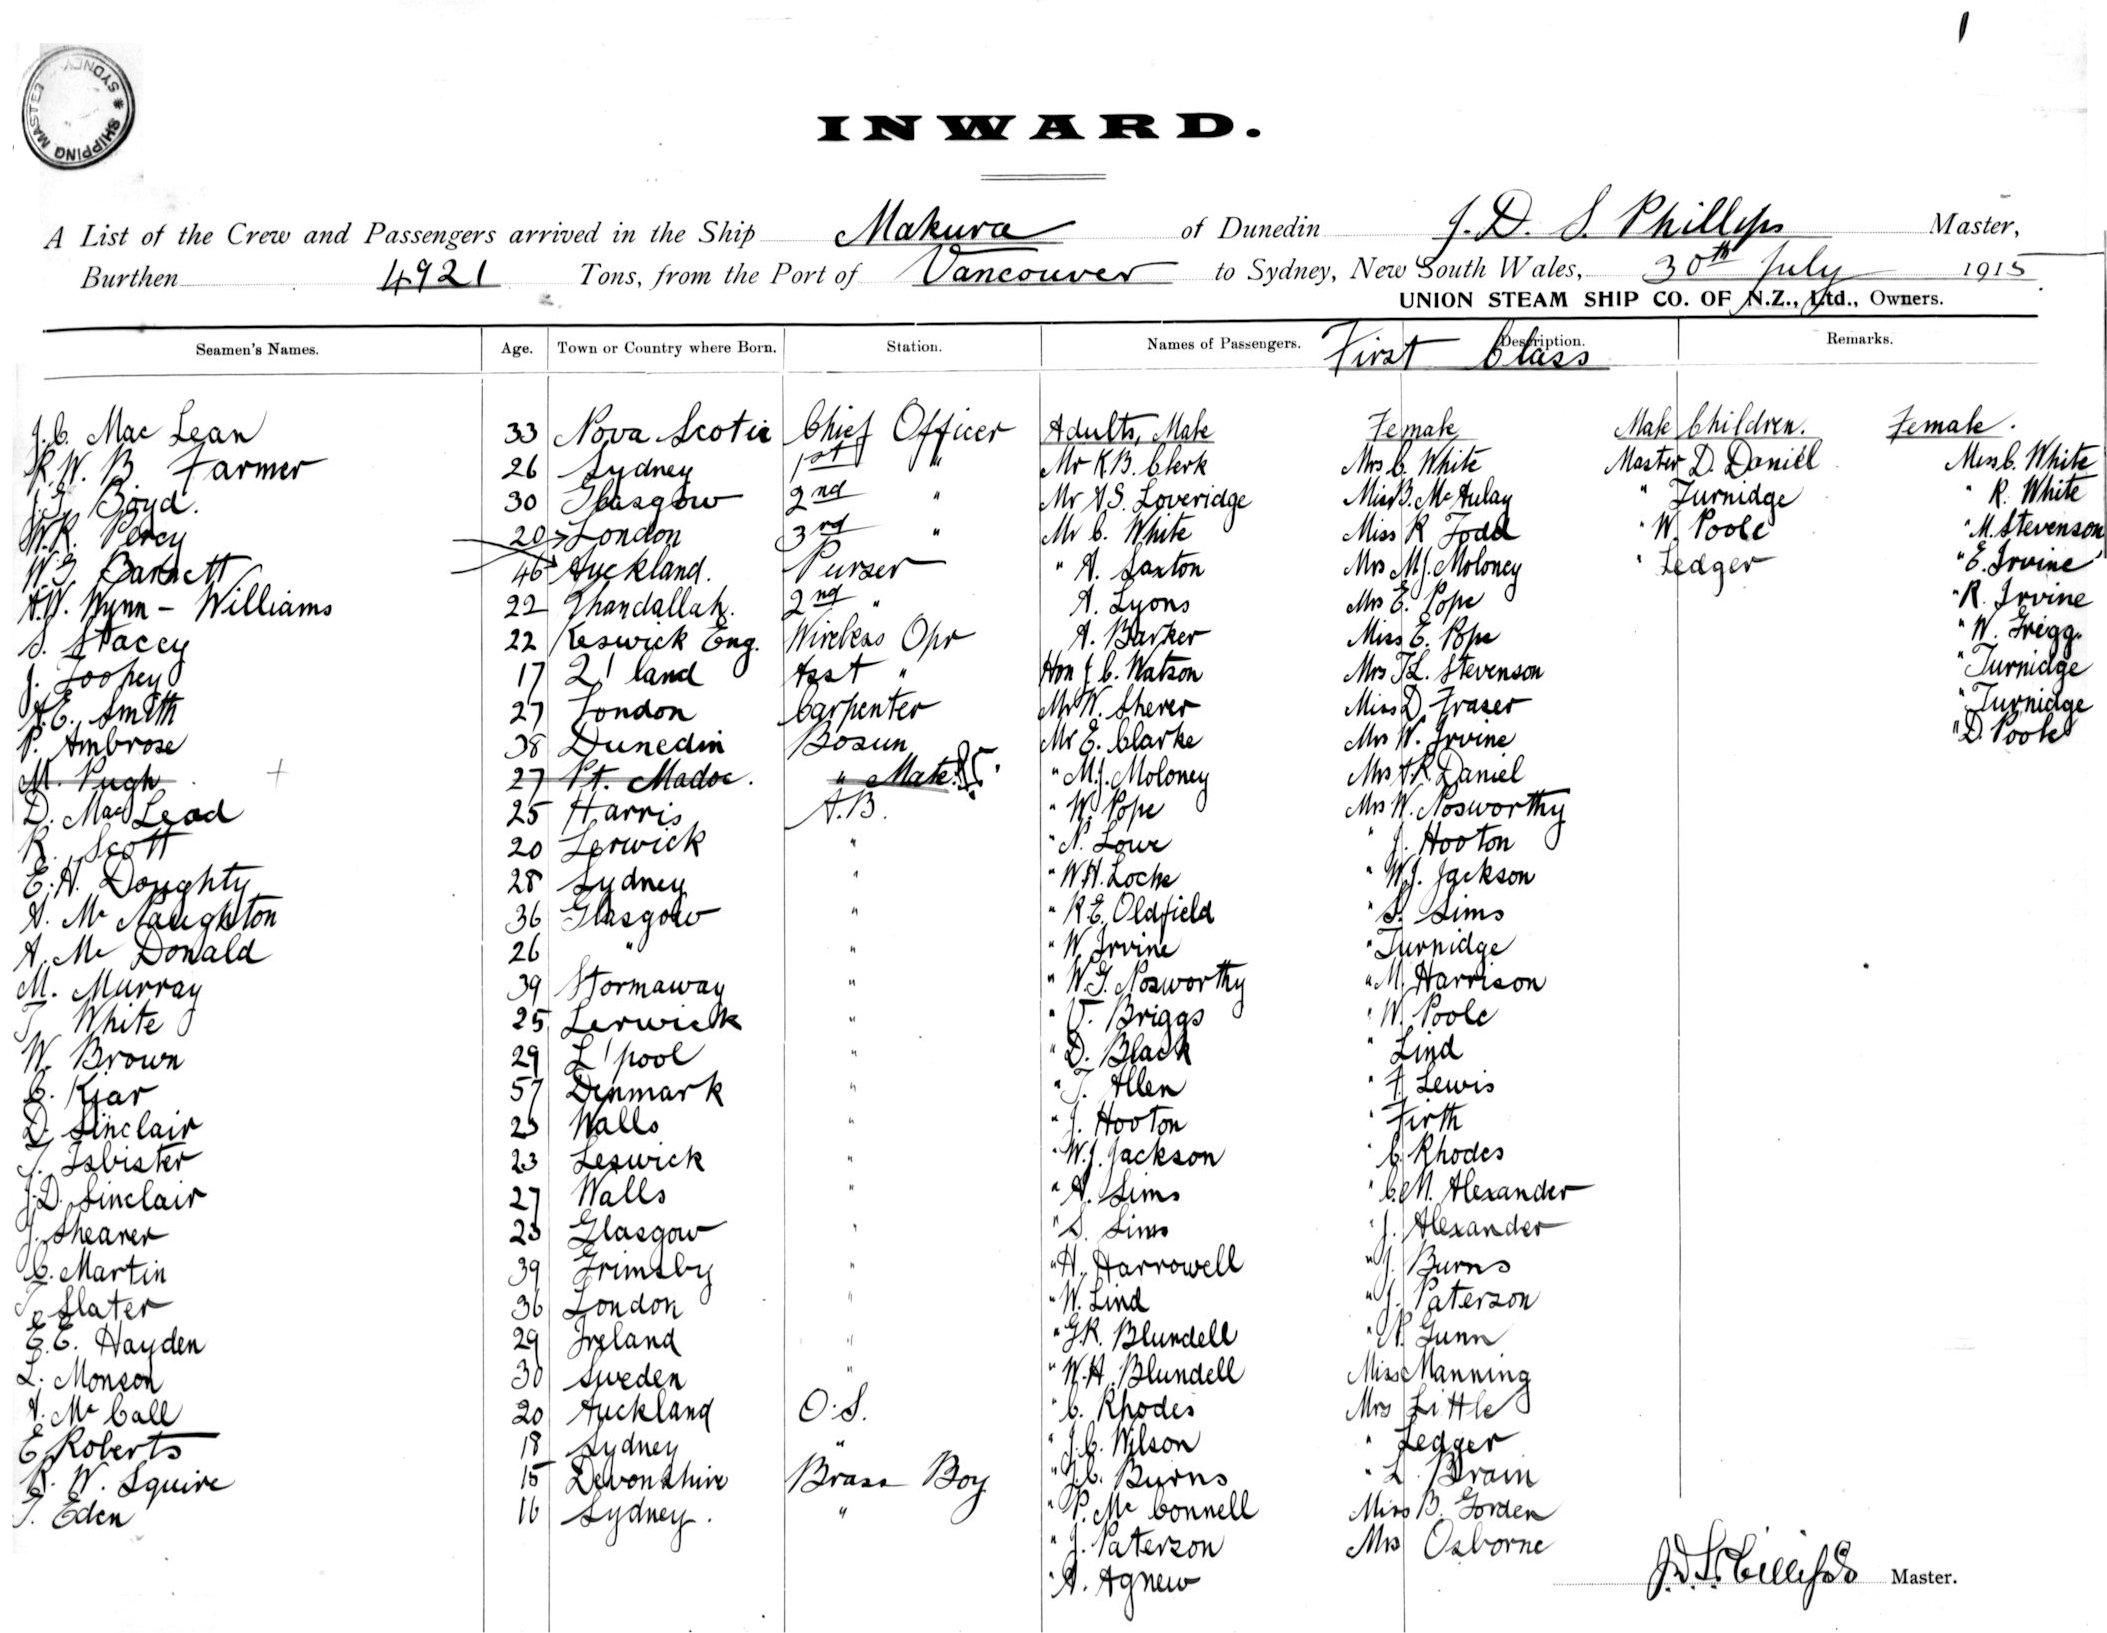 SHIPPING MASTER * SYDNEY
INWARD.
A List of the Crew and Passengers arrived in the Ship Makura of Dunedin J. D. S. Phillips Master,
Burthen 4921 Tons, from the Port of Vancouver to Sydney, New South Wales, 30th July 1915
UNION STEAM SHIP CO. OF N.Z., Ltd., Owners.
Seamen's Names. Age. Town or Country where Born. Station. Names of Passengers. Description. Remarks.
First Class
J. C. Mac Lean 33 Nova Scotia Chief Officer Adults, Male Female Male Children. Female.
R. W. B. Farmer 26 Sydney 1st " Mr K B. Clerk Mrs C. White Master D. Daniel Miss C. White
J. G. Boyd. 30 Glasgow 2nd " Mr A S. Loveridge Miss B. Mc Aulay " Turnidge " R. White
W. R. Percy 20 London 3rd " Mr C. White Miss R Todd " W. Poole " M. Stevenson
W. G. Barnett 46 Auckland. Purser " A. Saxton Mrs M. J. Moloney " Ledger " E. Irvine
A. W. Wynn - Williams 22 Khandallah. 2nd " A. Lyons Mrs E. Pope " R. Irvine
S. Stacey 22 Keswick Eng. Wireless Opr A. Barker Miss E. Pope " W. Grigg.
J. Toohey 17 Q'land Asst " Hon J. C. Watson Mrs T L. Stevenson " Turnidge
A. E. Smith 27 London Carpenter Mr W. Sherer Miss D. Fraser " Turnidge
P. Ambrose 38 Dunedin Bosun Mr E. Clarke Mrs W. Irvine " D. Poole
M. Pugh 27 Pt. Madoc. " Mate. " M. J. Moloney Mrs A R. Daniel
D. Mac Lead 25 Harris A.B. " W. Pope Mrs W. Nosworthy
R. Scott 20 Lerwick " " N. Lowe " J. Hooton
E. H. Doughty 28 Sydney " " W. H. Locke " W. J. Jackson
A. Mc Naughton 36 Glasgow " " R. E. Oldfield " S. Sims
A. Mc Donald 26 " " " W. Irvine " Turnidge
M. Murray 39 Stornaway " " W. G. Nosworthy " M. Harrison
T. White 25 Lerwick " " V. Briggs " W. Poole
W. Brown 29 L'pool " " D. Black " Lind
C. Kjar 57 Denmark " " T. Allen " F. Lewis
D. Sinclair 25 Walls " " J. Hooton " Firth
J. Isbister 23 Leswick " " W. J. Jackson " C. Rhodes
J. D. Sinclair 27 Walls " " A. Sims " C. M. Alexander
J. Shearer 23 Glasgow " " S. Sims " J. Alexander
C. Martin 39 Grimsby " " H. Harrowell " J. Burns
T. Slater 36 London " " W. Lind " J. Paterson
E. E. Hayden 29 Ireland " " G. R. Blundell " N. Gunn
L. Monson 30 Sweden " " W. H. Blundell Miss Manning
A. Mc Call 20 Auckland O.S. " C. Rhodes Mrs Little
E. Roberts 18 Sydney " " J. C. Wilson " Ledger
R. W. Squire 15 Devonshire Brass Boy " J. C. Burns " L. Brain
T. Eden 16 Sydney. " " P. Mc Connell Miss B. Gorden
" J. Paterson Mrs Osborne
" A. Agnew
J. D. S. Phillips Master.